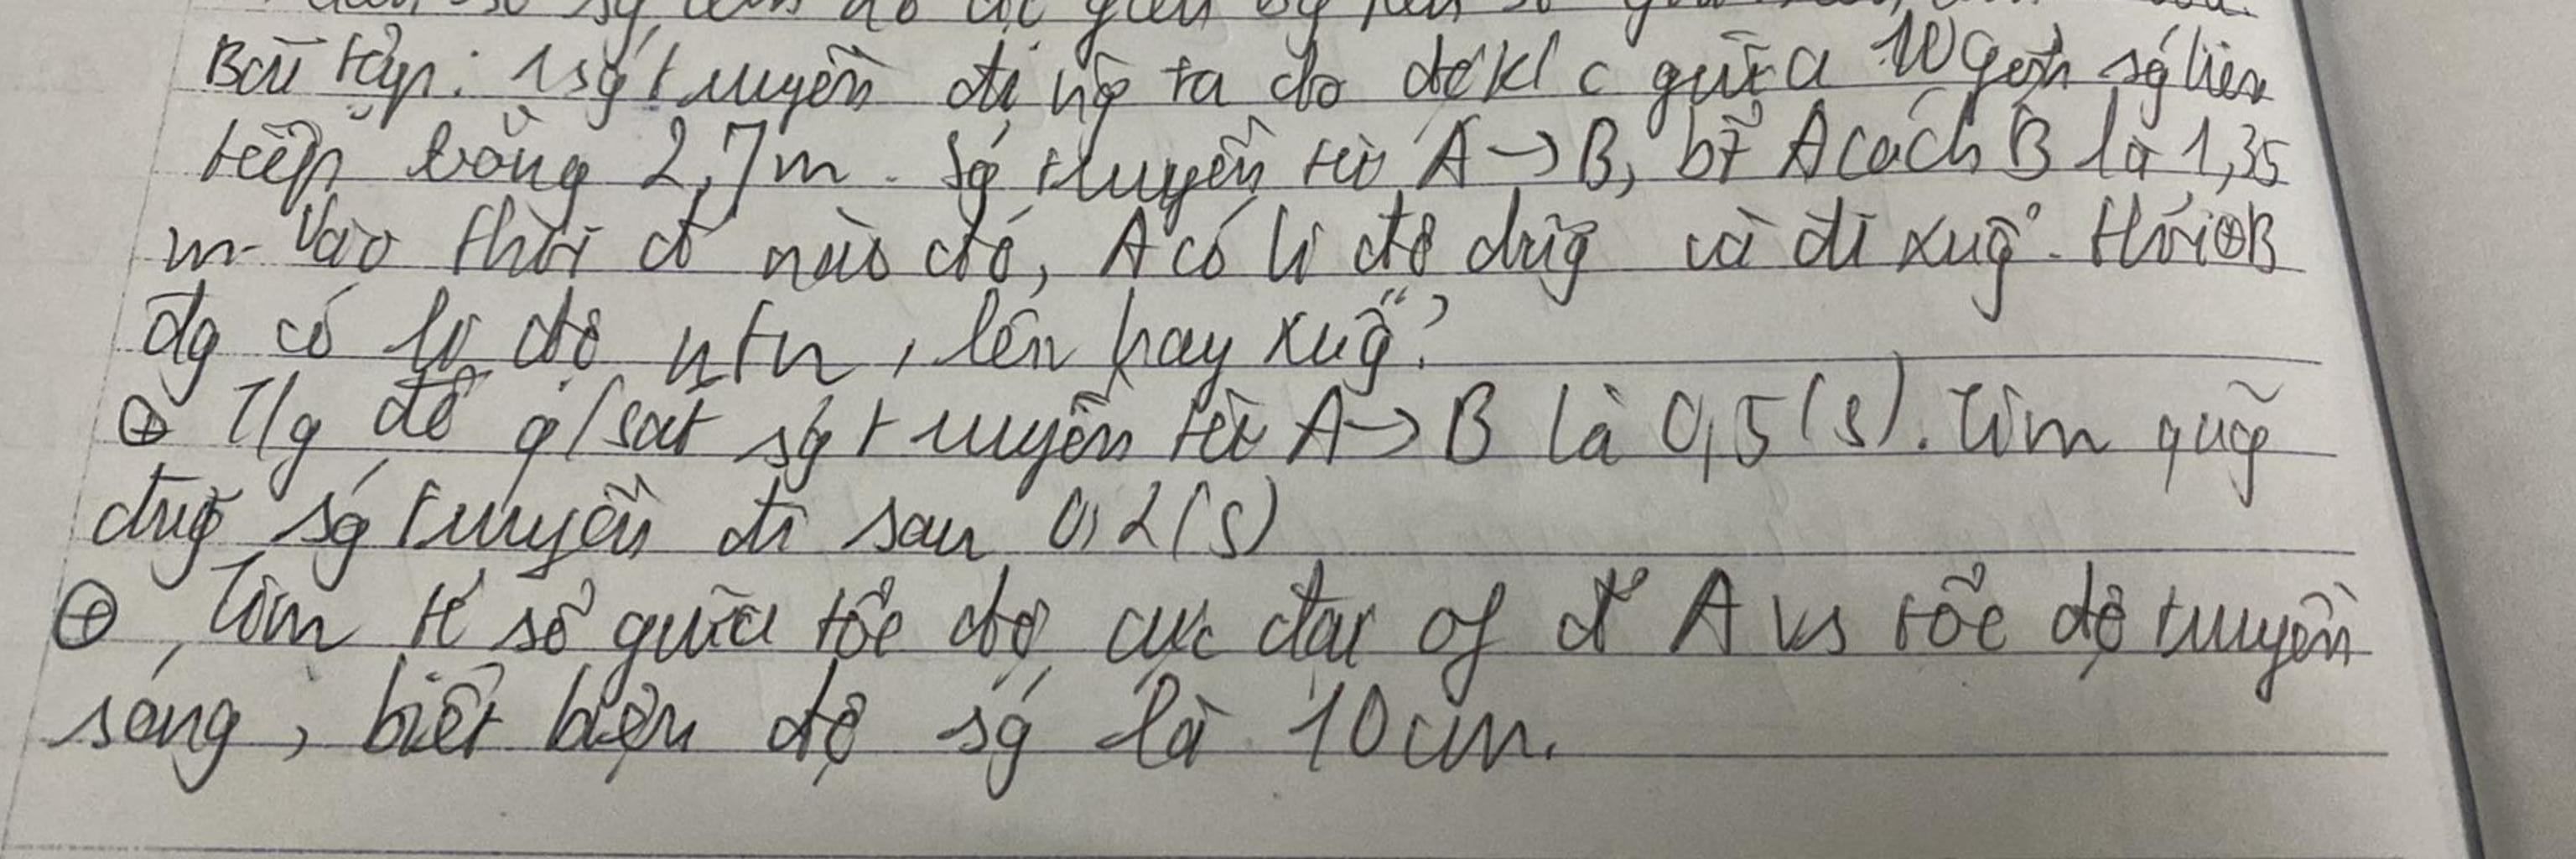 Bài tập: 1 sg truyền đi ng ta đo đc k/c giữa 10 gợn sg liên
tiếp bằng 2,7m. Sg truyền từ A → B, bt A cách B là 1,35
m. Vào thời đ nào đó, A có li độ dưg và đi xug. Hỏi ⊕ B
đg có li độ ntn, lên hay xug?
⊕ T/g để q/sát sg truyền từ A → B là 0,5 (s). Tìm quãg
đưg sg truyền đi sau 0,2 (s)
⊕, Tìm tỉ số giữa tốc độ cực đại of đ A vs tốc độ truyền
sóng, biết biên độ sg là 10 cm.